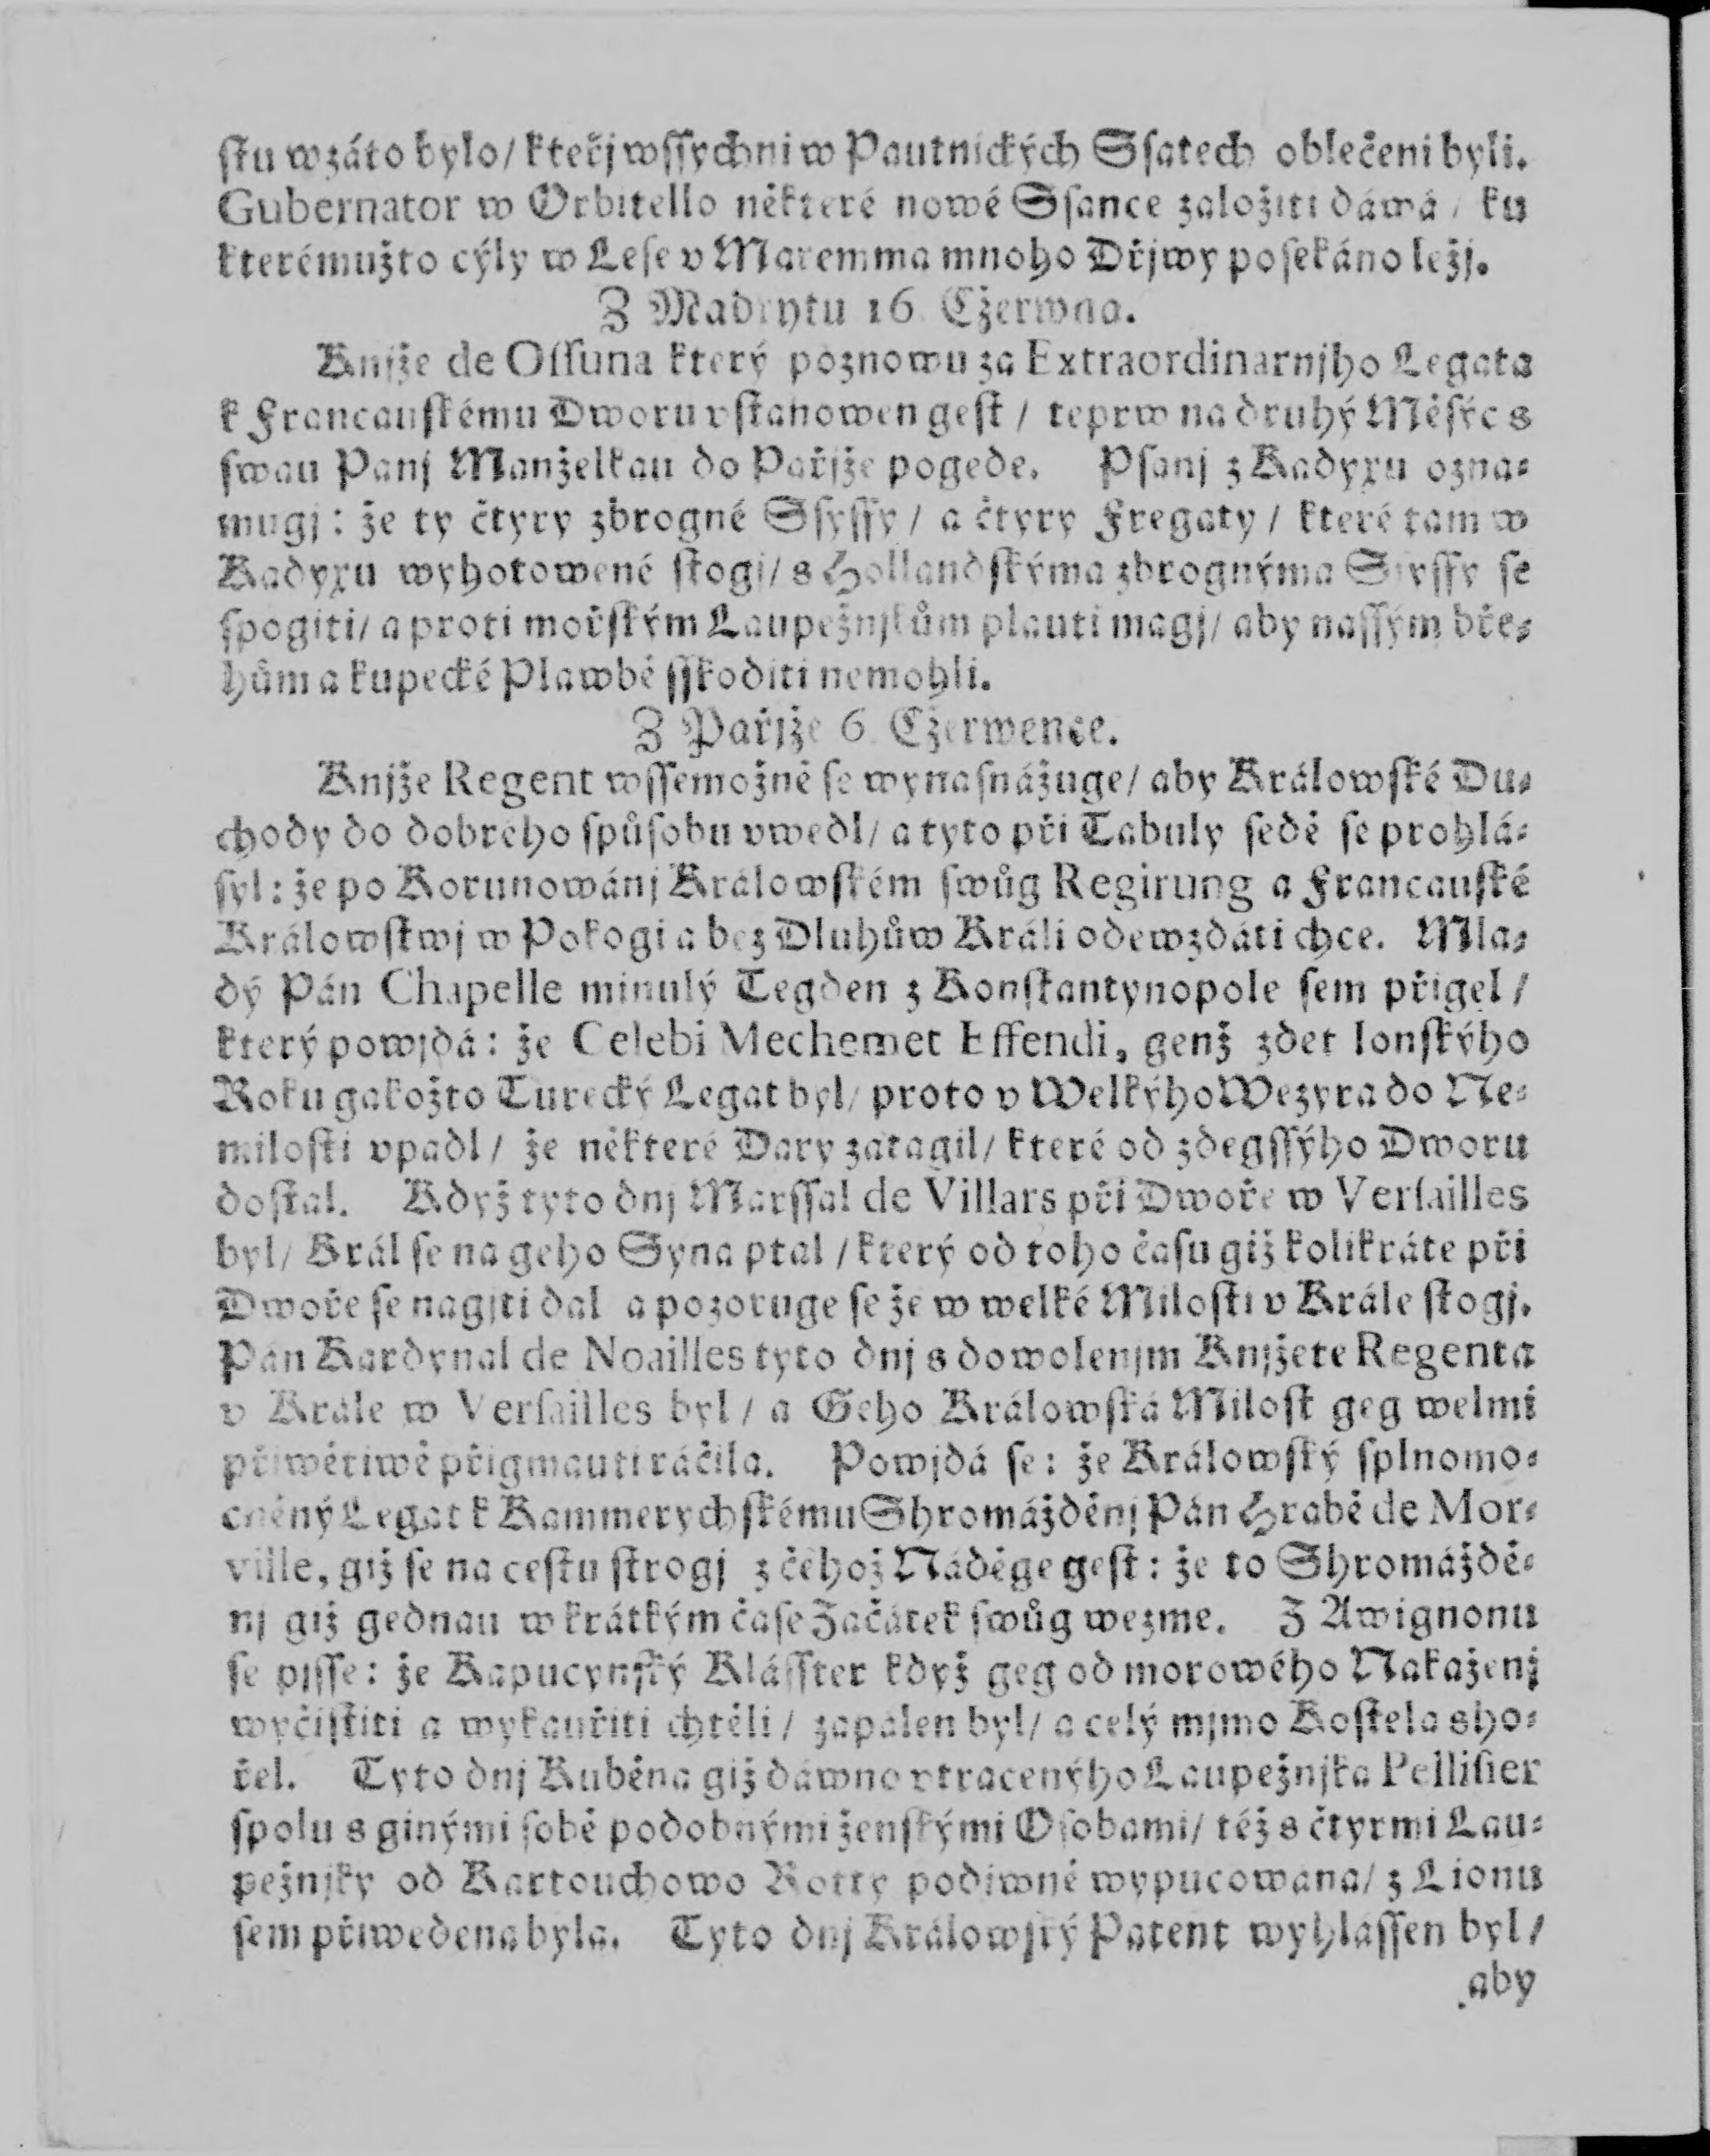 ſtu wzáto bylo/ kteřj wſſychni w Pautnických Sſatech oblečeni byli.
Gubernator w Orbitello některé nowé Sſance založiti dáwá / ku
kterémužto cýly w Leſe v Maremma mnoho Dřjwy poſekáno ležj.
Z Madrytu 16 Cžerwna.
Knjže de Oſſuna který poznowu za Extraordinarnjho Legata
k Francauſkému Dworu vſtanowen geſt / teprw na druhý Měſýc s
ſwau Panj Manželkau do Pařjže pogede. Pſanj z Kadyxu ozna-
mugj: že ty čtyry zbrogné Sſyffy / a čtyry Fregaty / které tam w
Kadyxu wyhotowené ſtogj/ s Hollandſkýma zbrognýma Sſyffy ſe
ſpogiti/ a proti mořſkým Laupežnjkům plauti magj/ aby naſſým bře-
hům a kupecké Plawbě ſſkoditi nemohli.
Z Pařjže 6 Cžerwence.
Knjže Regent wſſemožně ſe wynaſnážuge/ aby Králowſké Du-
chody do dobrého ſpůſobu vwedl/ a tyto při Tabuly ſedě ſe prohlá-
ſyl: že po Korunowánj Králowſkém ſwůg Regirung a Francauſké
Králowſtwj w Pokogi a bez Dluhůw Králi odewzdáti chce. Mla-
dý Pán Chapelle minulý Tegden z Konſtantynopole ſem přigel /
který powjdá: že Celebi Mechemet Effendi, genž zdet lonſkýho
Roku gakožto Turecký Legat byl/ proto v Welkýho Wezyra do Ne-
miloſti vpadl / že některé Dary zatagil/ které od zdegſſýho Dworu
doſtal. Když tyto dnj Marſſal de Villars při Dwoře w Verſailles
byl/ Král ſe na geho Syna ptal / který od toho čaſu giž kolikráte při
Dwoře ſe nagjti dal a pozoruge ſe že w welké Miloſti v Krále ſtogj.
Pán Kardynal de Noailles tyto dnj s dowolenjm Knjžete Regenta
v Krále w Verſailles byl / a Geho Králowſká Miloſt geg welmi
přiwětiwě přigmauti ráčila. Powjdá ſe: že Králowſký ſplnomo-
cněný Legat k Kammerychſkému Shromážděnj Pán Hrabě de Mor-
ville, giž ſe na ceſtu ſtrogj z čehož Náděge geſt: že to Shromáždě-
nj giž gednau w krátkým čaſe Začátek ſwůg wezme. Z Awignonu
ſe pjſſe: že Kapucynſký Kláſſter když geg od morowého Nakaženj
wyčiſtiti a wykauřiti chtěli / zapálen byl/ a celý mjmo Koſtela sho-
řel. Tyto dnj Kuběna giž dáwno vtracenýho Laupežnjka Pelliſier
ſpolu s ginými ſobě podobnými ženſkými Oſobami/ též s čtyrmi Lau-
pežnjky od Kartouchowo Rotty podiwně wypucowána/ z Lionu
ſem přiwedena byla. Tyto dnj Králowſký Patent wyhláſſen byl /
aby